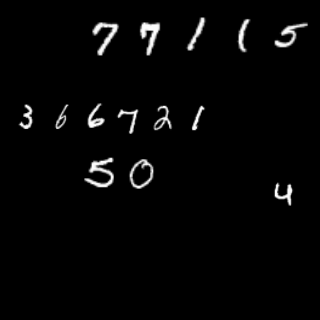 77115
366721
50
4